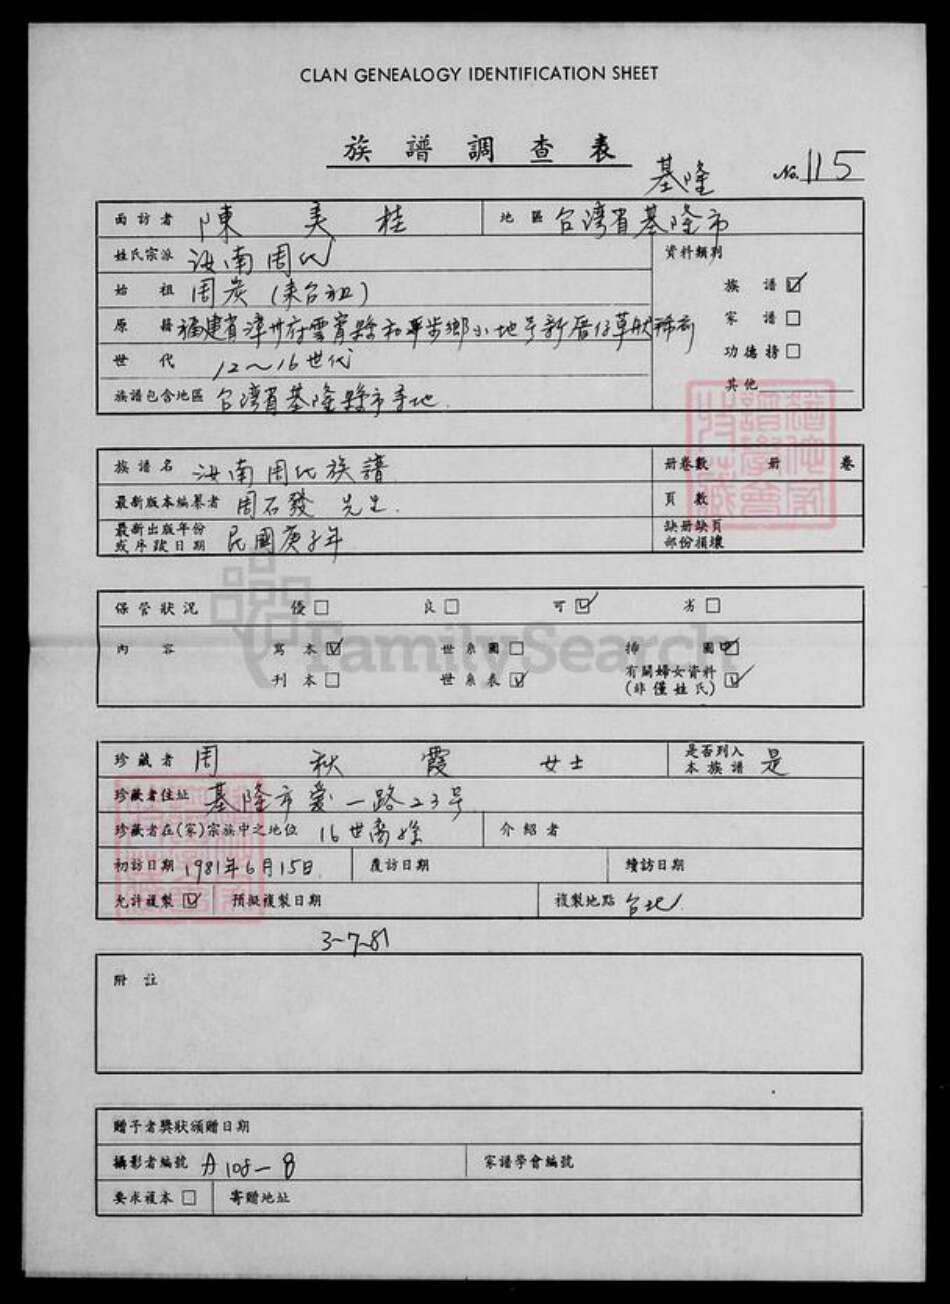 CLAN GENEALOGY IDENTIFICATION SHEET
族譜調查表
基隆 No. 115
面訪者 陳美桂 地區 台湾省基隆市
姓氏宗派 汝南周氏 資料類別
始祖 周炭(來台祖) 族譜 ☑
原籍 福建省漳州府雲霄縣和平步鄉小地号新厝仔草 家譜 □
世代 12~16世代 功德榜 □
族譜包含地區 台湾省基隆縣市等地. 其他
族譜名 汝南周氏族譜 冊卷數 冊 卷
最新版本編纂者 周石發 先生. 頁數
最新出版年份 缺冊缺頁
或序跋日期 民國庚子年 部份損壞
保管狀況 優 □ 良 □ 可 ☑ 劣 □
內容 寫本 ☑ 世系圖 □ 插圖 ☑
刊本 □ 世系表 ☑ 有關婦女資料 ☑
(非僅姓氏)
珍藏者 周秋霞 女士 是否列入本族譜 是
珍藏者住址 基隆市愛一路23号
珍藏者在(家)宗族中之地位 16世裔孫 介紹者
初訪日期 1981年6月15日. 覆訪日期 續訪日期
允許複製 ☑ 預擬複製日期 複製地點 台北
3-7-81
附註
贈予者獎狀頒贈日期
攝影者編號 A108-8 家譜學會編號
要求複本 □ 寄贈地址
FamilySearch